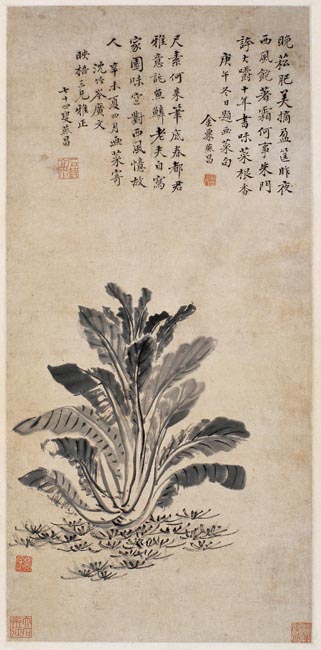 晚菘肥美摘盈筐昨夜
西風飽著霜何事朱門
誇大嚼十年書味菜根香
庚午冬日題画菜句
金粟燕昌
尺素何來筆底春都君
雅意託魚鱗老夫自寫
家園味空對西風憶故
人 辛未夏四月画菜寄
沈竹岑廣文
三兄雅正
七十四叟燕昌